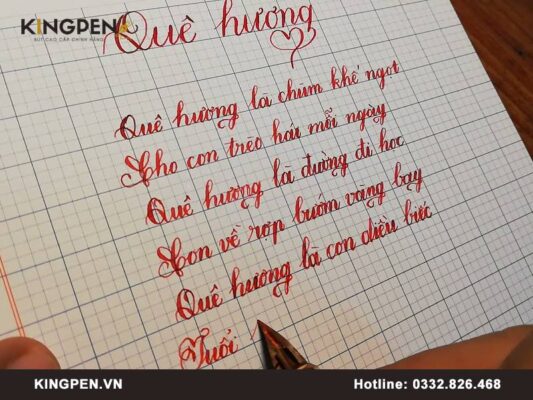 KINGPEN
BÚT CAO CẤP CHÍNH HÃNG
Quê hương
Quê hương là chùm khế ngọt
Cho con trèo hái mỗi ngày
Quê hương là đường đi học
Con về rợp bướm vàng bay
Quê hương là con diều biếc
Tuổi
KINGPEN.VN
Hotline: 0332.826.468